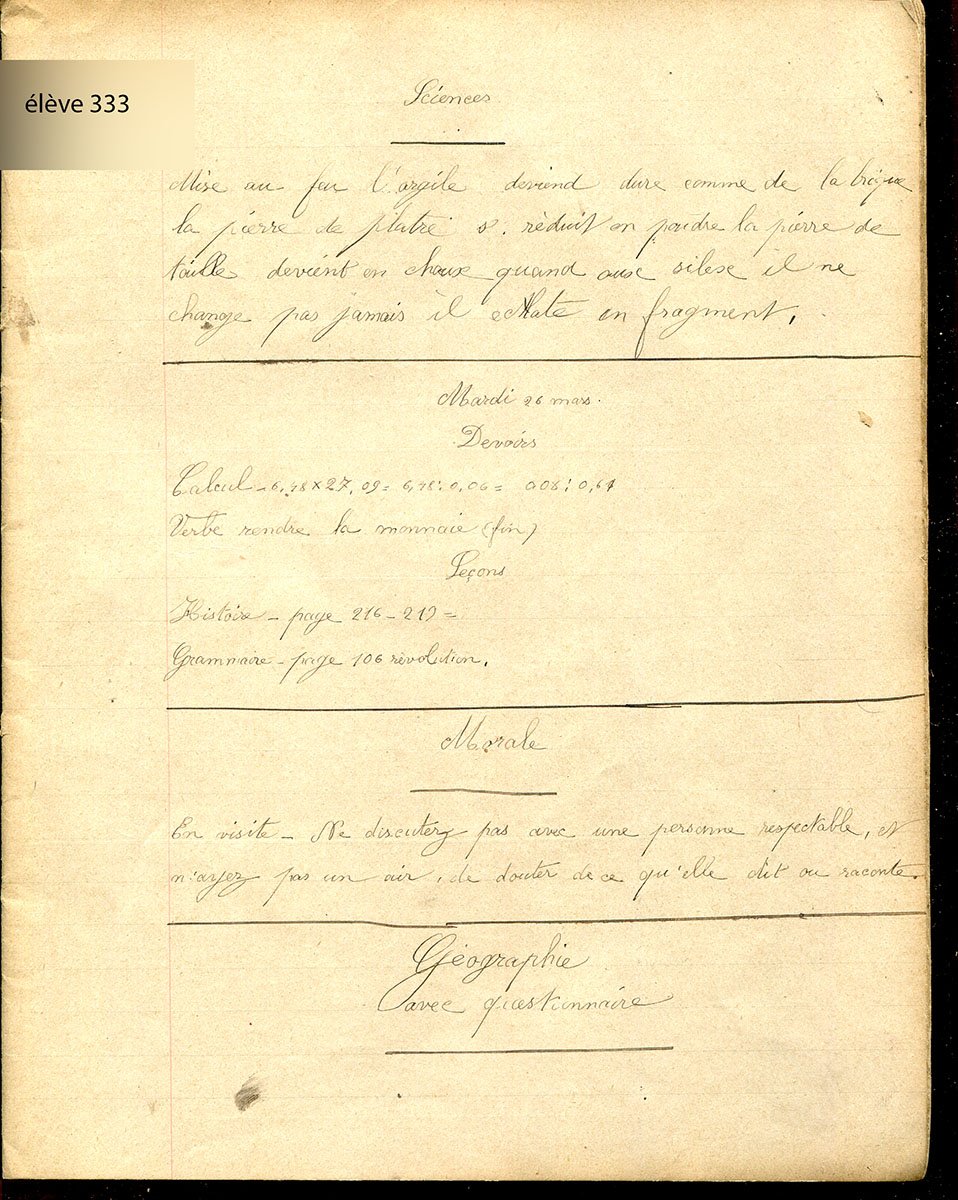 élève 333
Sciences
Mise au feu l'argile deviend dure comme de la brique
la pierre de platre s. réduit en poudre la pierre de
taille devient en chaux quand aux silex il ne
change pas jamais il eclate en fragment.
Mardi 26 mars.
Devoirs
Calcul - 6,48 x 27,09 = 6,48 : 0,06 =
Verbe rendre la monnaie (fin)
Leçons
Histoire - page 216 - 219 =
Grammaire - page 106 révolution.
Morale
En visite - Ne discutez pas avec une personne respectable, et
n'ayez pas un air, de douter de ce qu'elle dit ou raconte.
Géographie
avec questionnaire